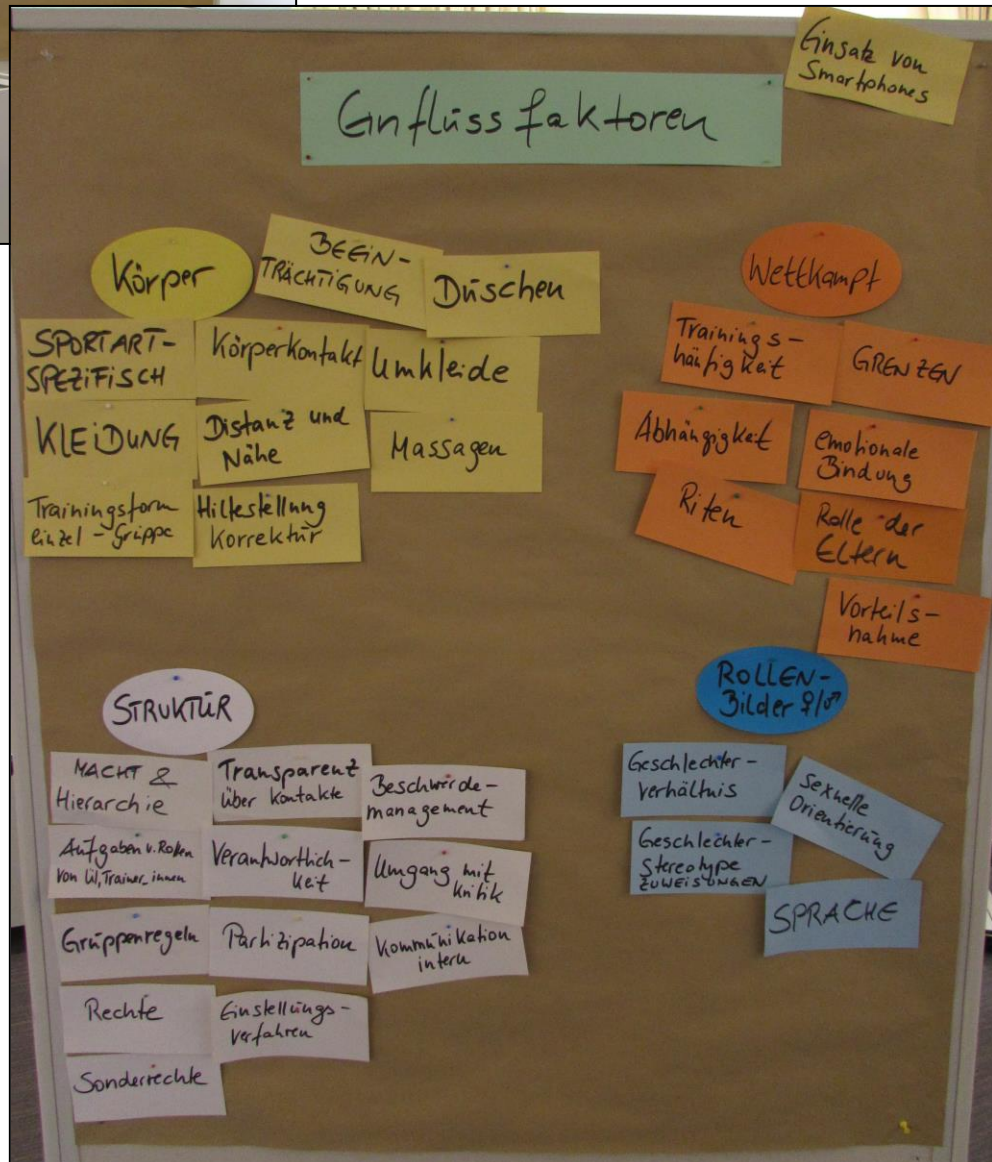 Einflussfaktoren
Einsatz von
Smartphones
Körper
BEEIN-
TRÄCHTIGUNG
Duschen
SPORTART-
SPEZIFISCH
Körperkontakt
Umkleide
KLEIDUNG
Distanz und
Nähe
Massagen
Trainingsform
einzel - Gruppe
Hilfestellung
Korrektur
Wettkampf
Trainings-
häufigkeit
GRENZEN
Abhängigkeit
emotionale
Bindung
Riten
Rolle der
Eltern
Vorteils-
nahme
STRUKTUR
MACHT &
Hierarchie
Transparenz
über Kontakte
Beschwerde-
management
Aufgaben u. Rollen
von ÜL, Trainer_innen
Verantwortlich-
keit
Umgang mit
Kritik
Gruppenregeln
Partizipation
Kommunikation
intern
Rechte
Einstellungs-
verfahren
Sonderrechte
ROLLEN-
Bilder ♀/♂
Geschlechter-
verhältnis
Sexuelle
Orientierung
Geschlechter-
Stereotype
ZUWEISUNGEN
SPRACHE